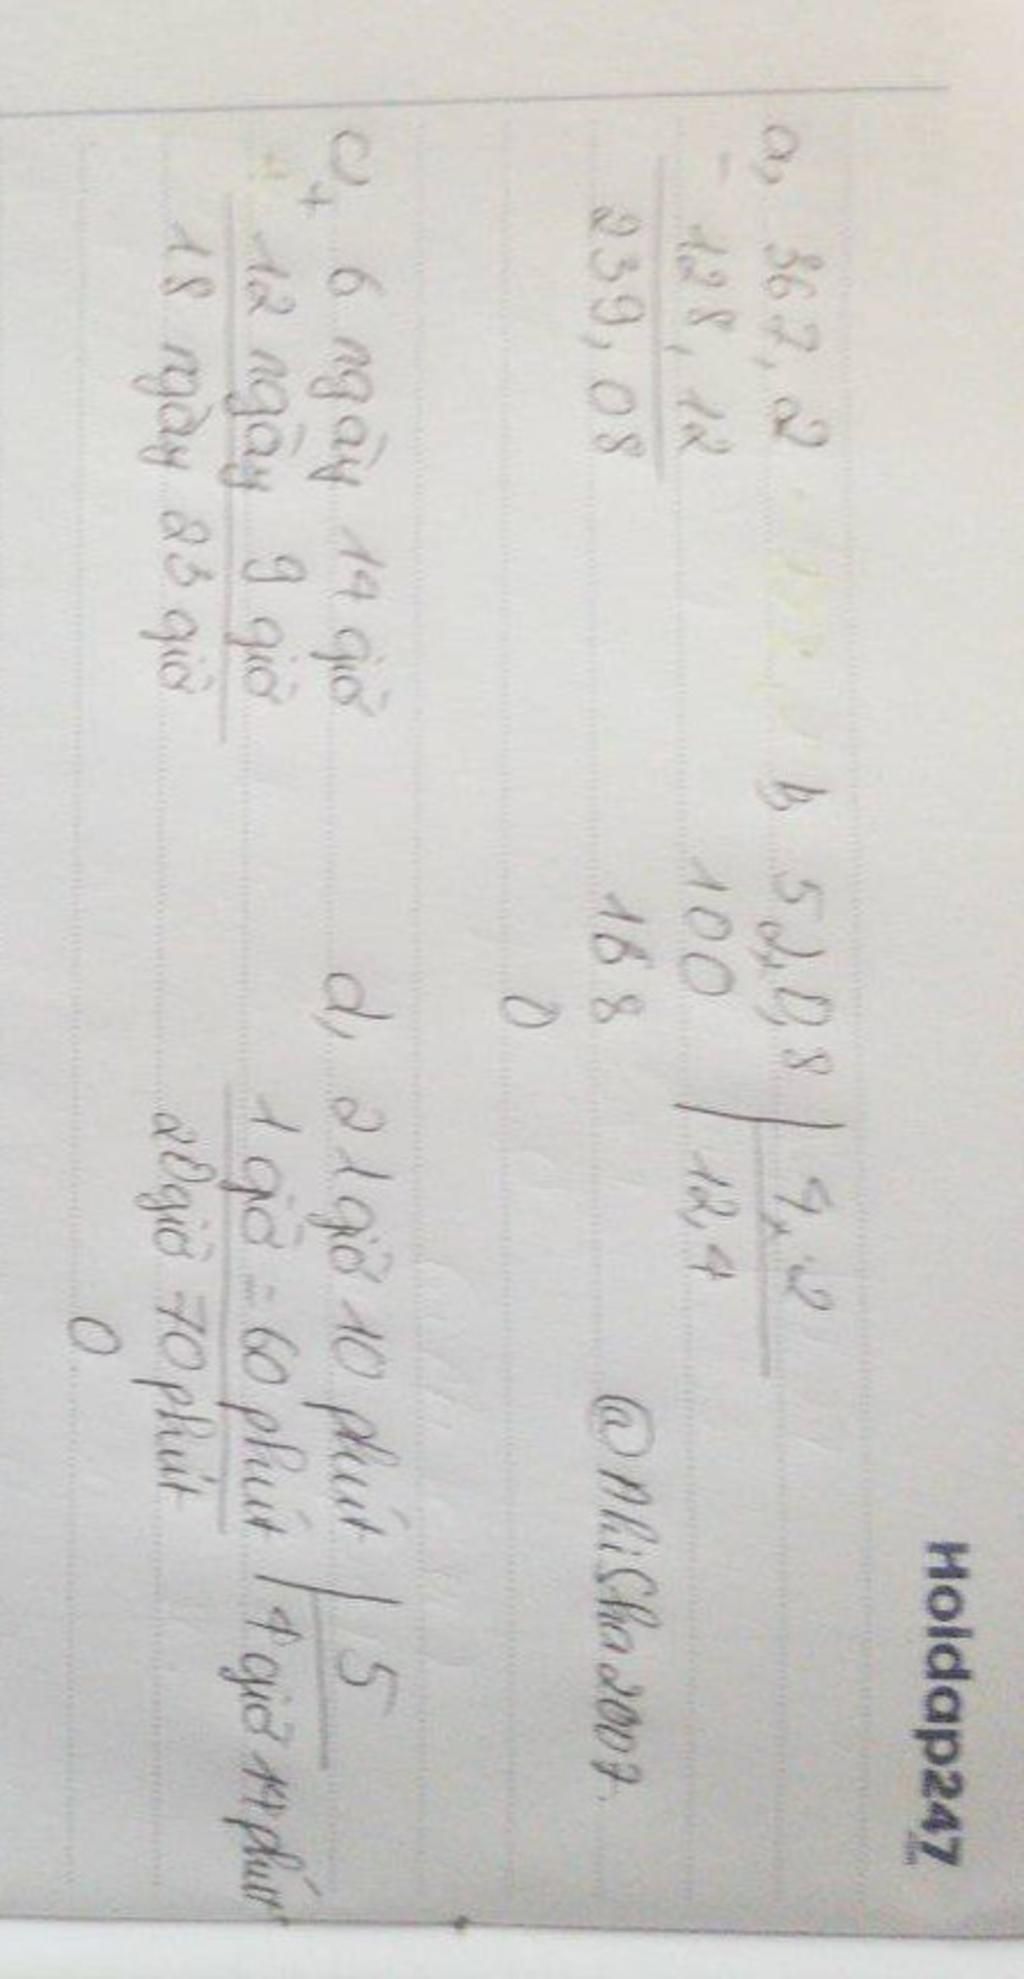 Hoidap247
a, 367,2
- 128,12
239,08
b, 52,08 | 4,2
100 12,4
168
0
@nhiSha2007
c, 6 ngày 14 giờ
+ 12 ngày 9 giờ
18 ngày 23 giờ
d, 21 giờ 10 phút | 5
1 giờ = 60 phút 4 giờ 14 phút
20 giờ 70 phút
0